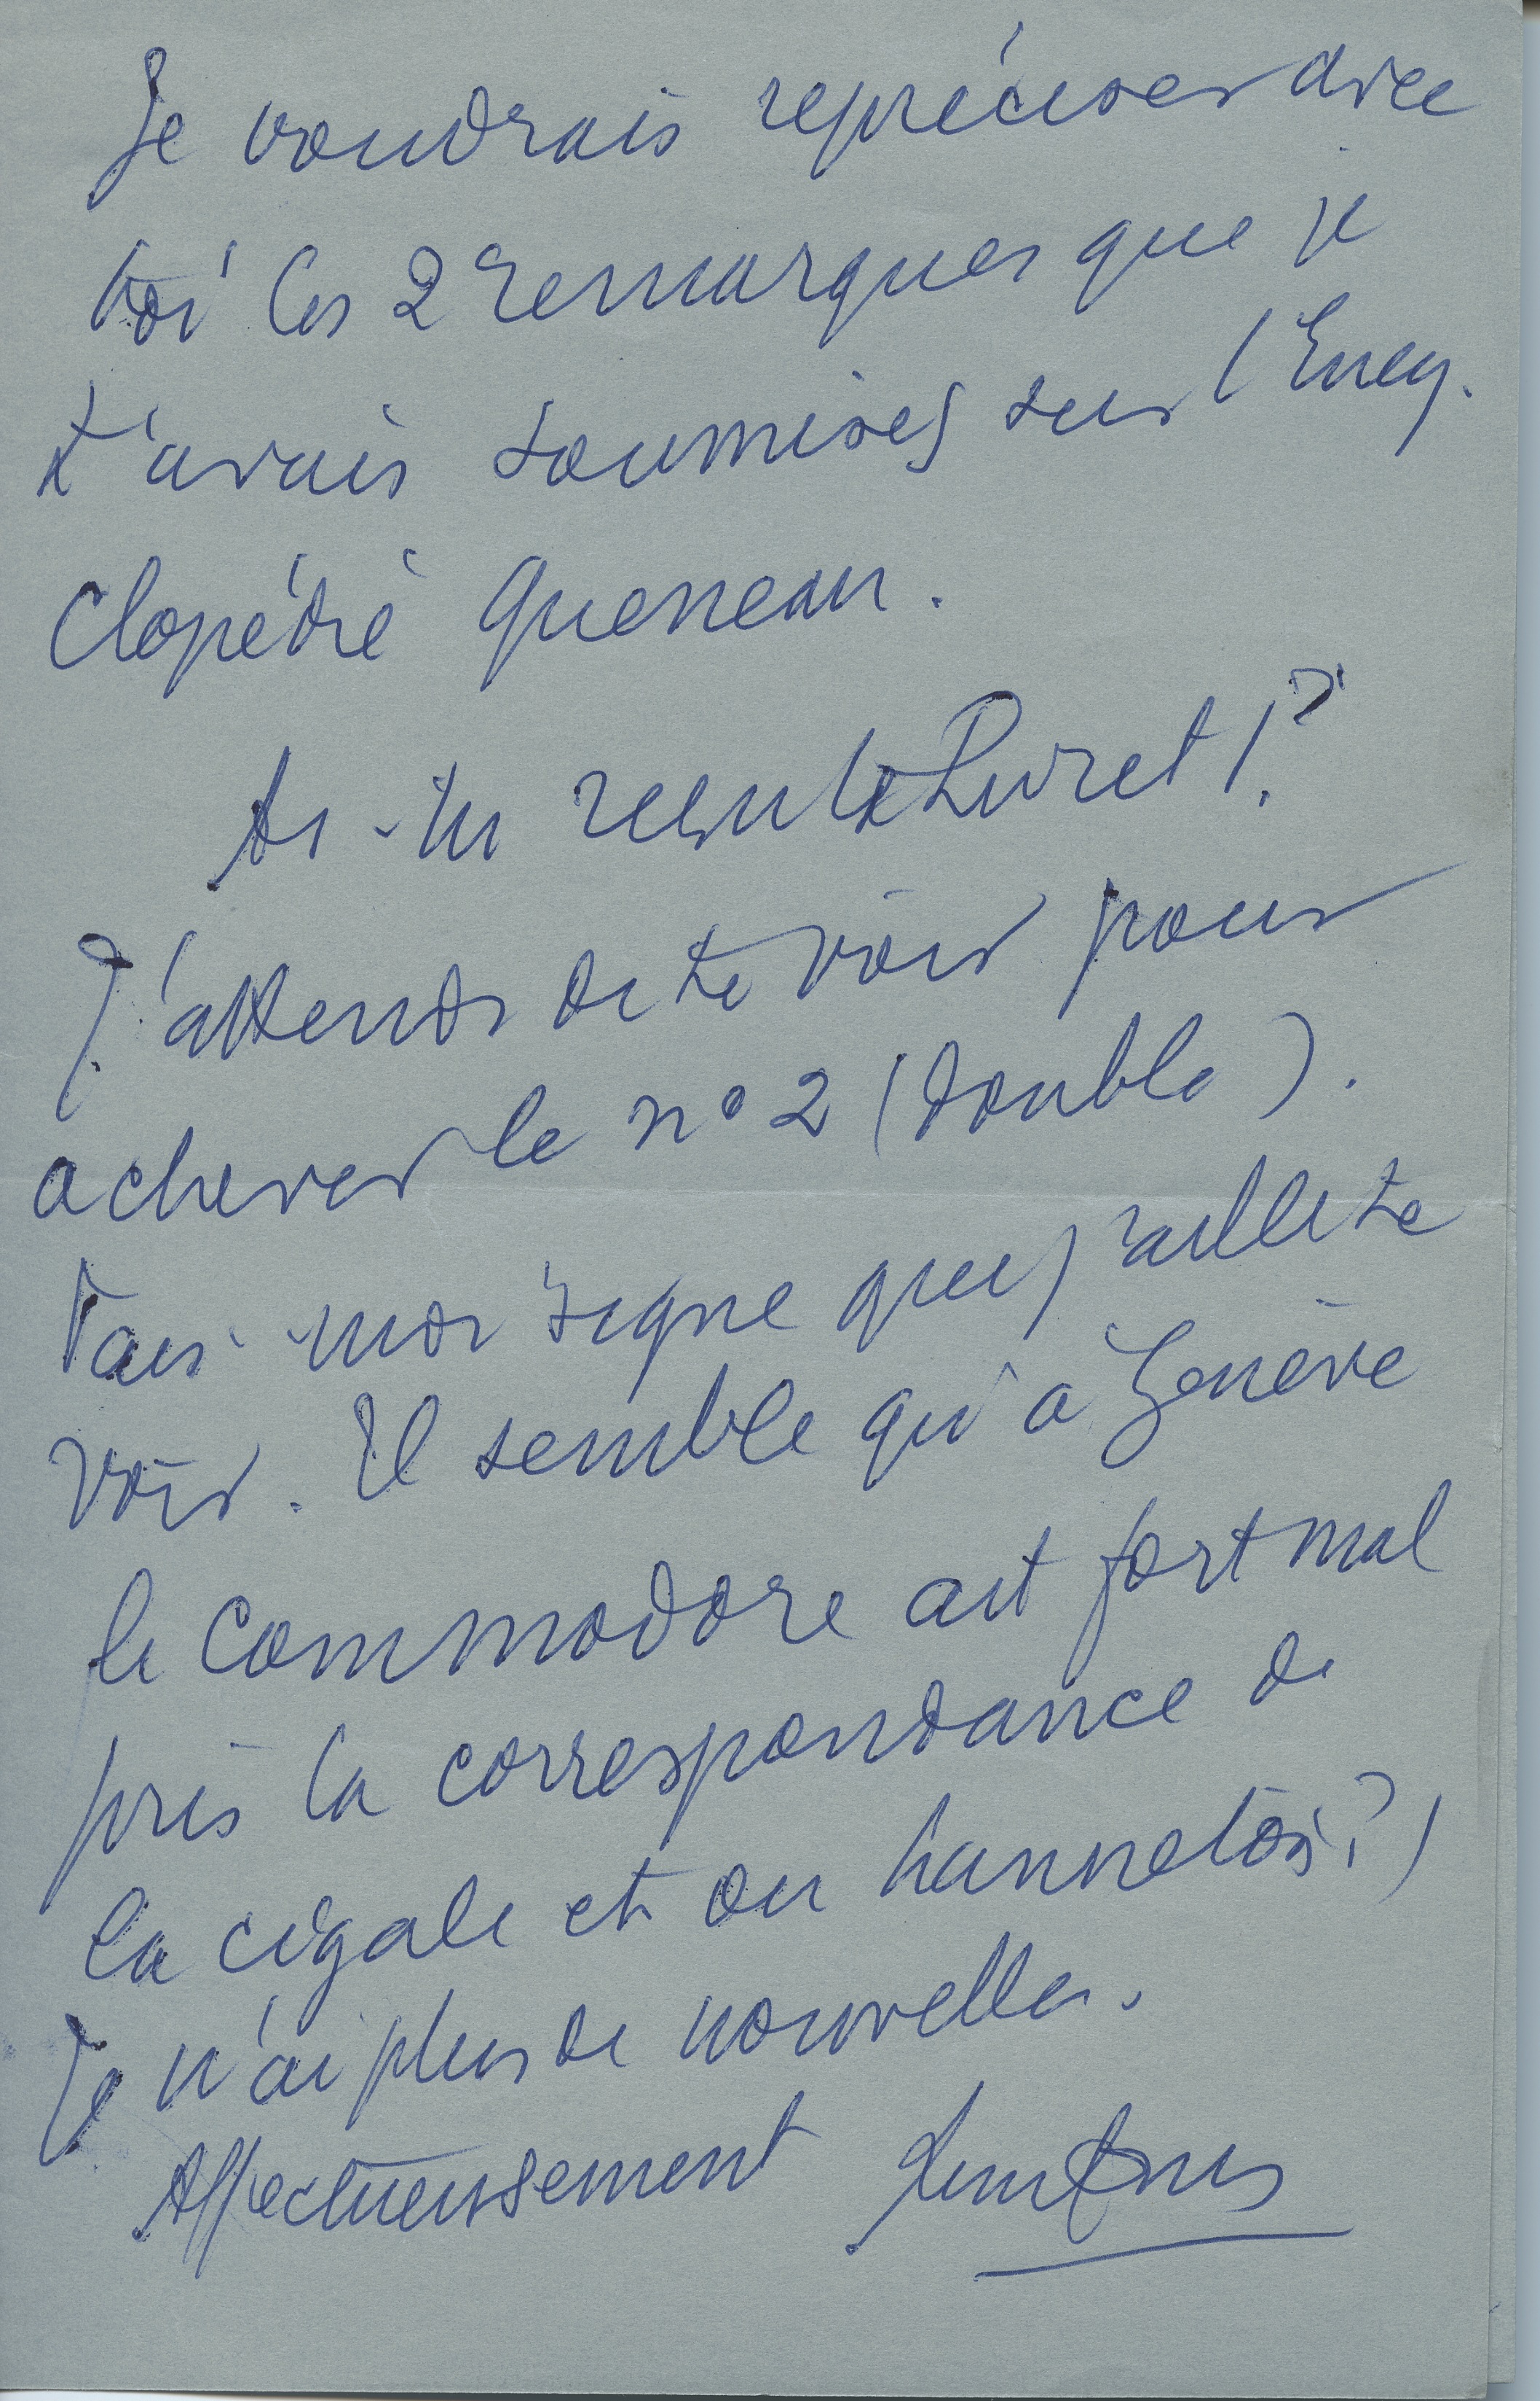 Je voudrais repréciser avec
toi les 2 remarques que je
t'avais soumises sur l'Ency.
clopédie Queneau.
As-tu reçu le Livret 1?
J'attends de te voir pour
achever le n° 2 (double).
Fais-moi signe que j'aille te
voir. Il semble qu'à Genève
le Commodore ait fort mal
pris la correspondance de
la cigale et du hanneton?)
Je n'ai plus de nouvelles.
Affectueusement